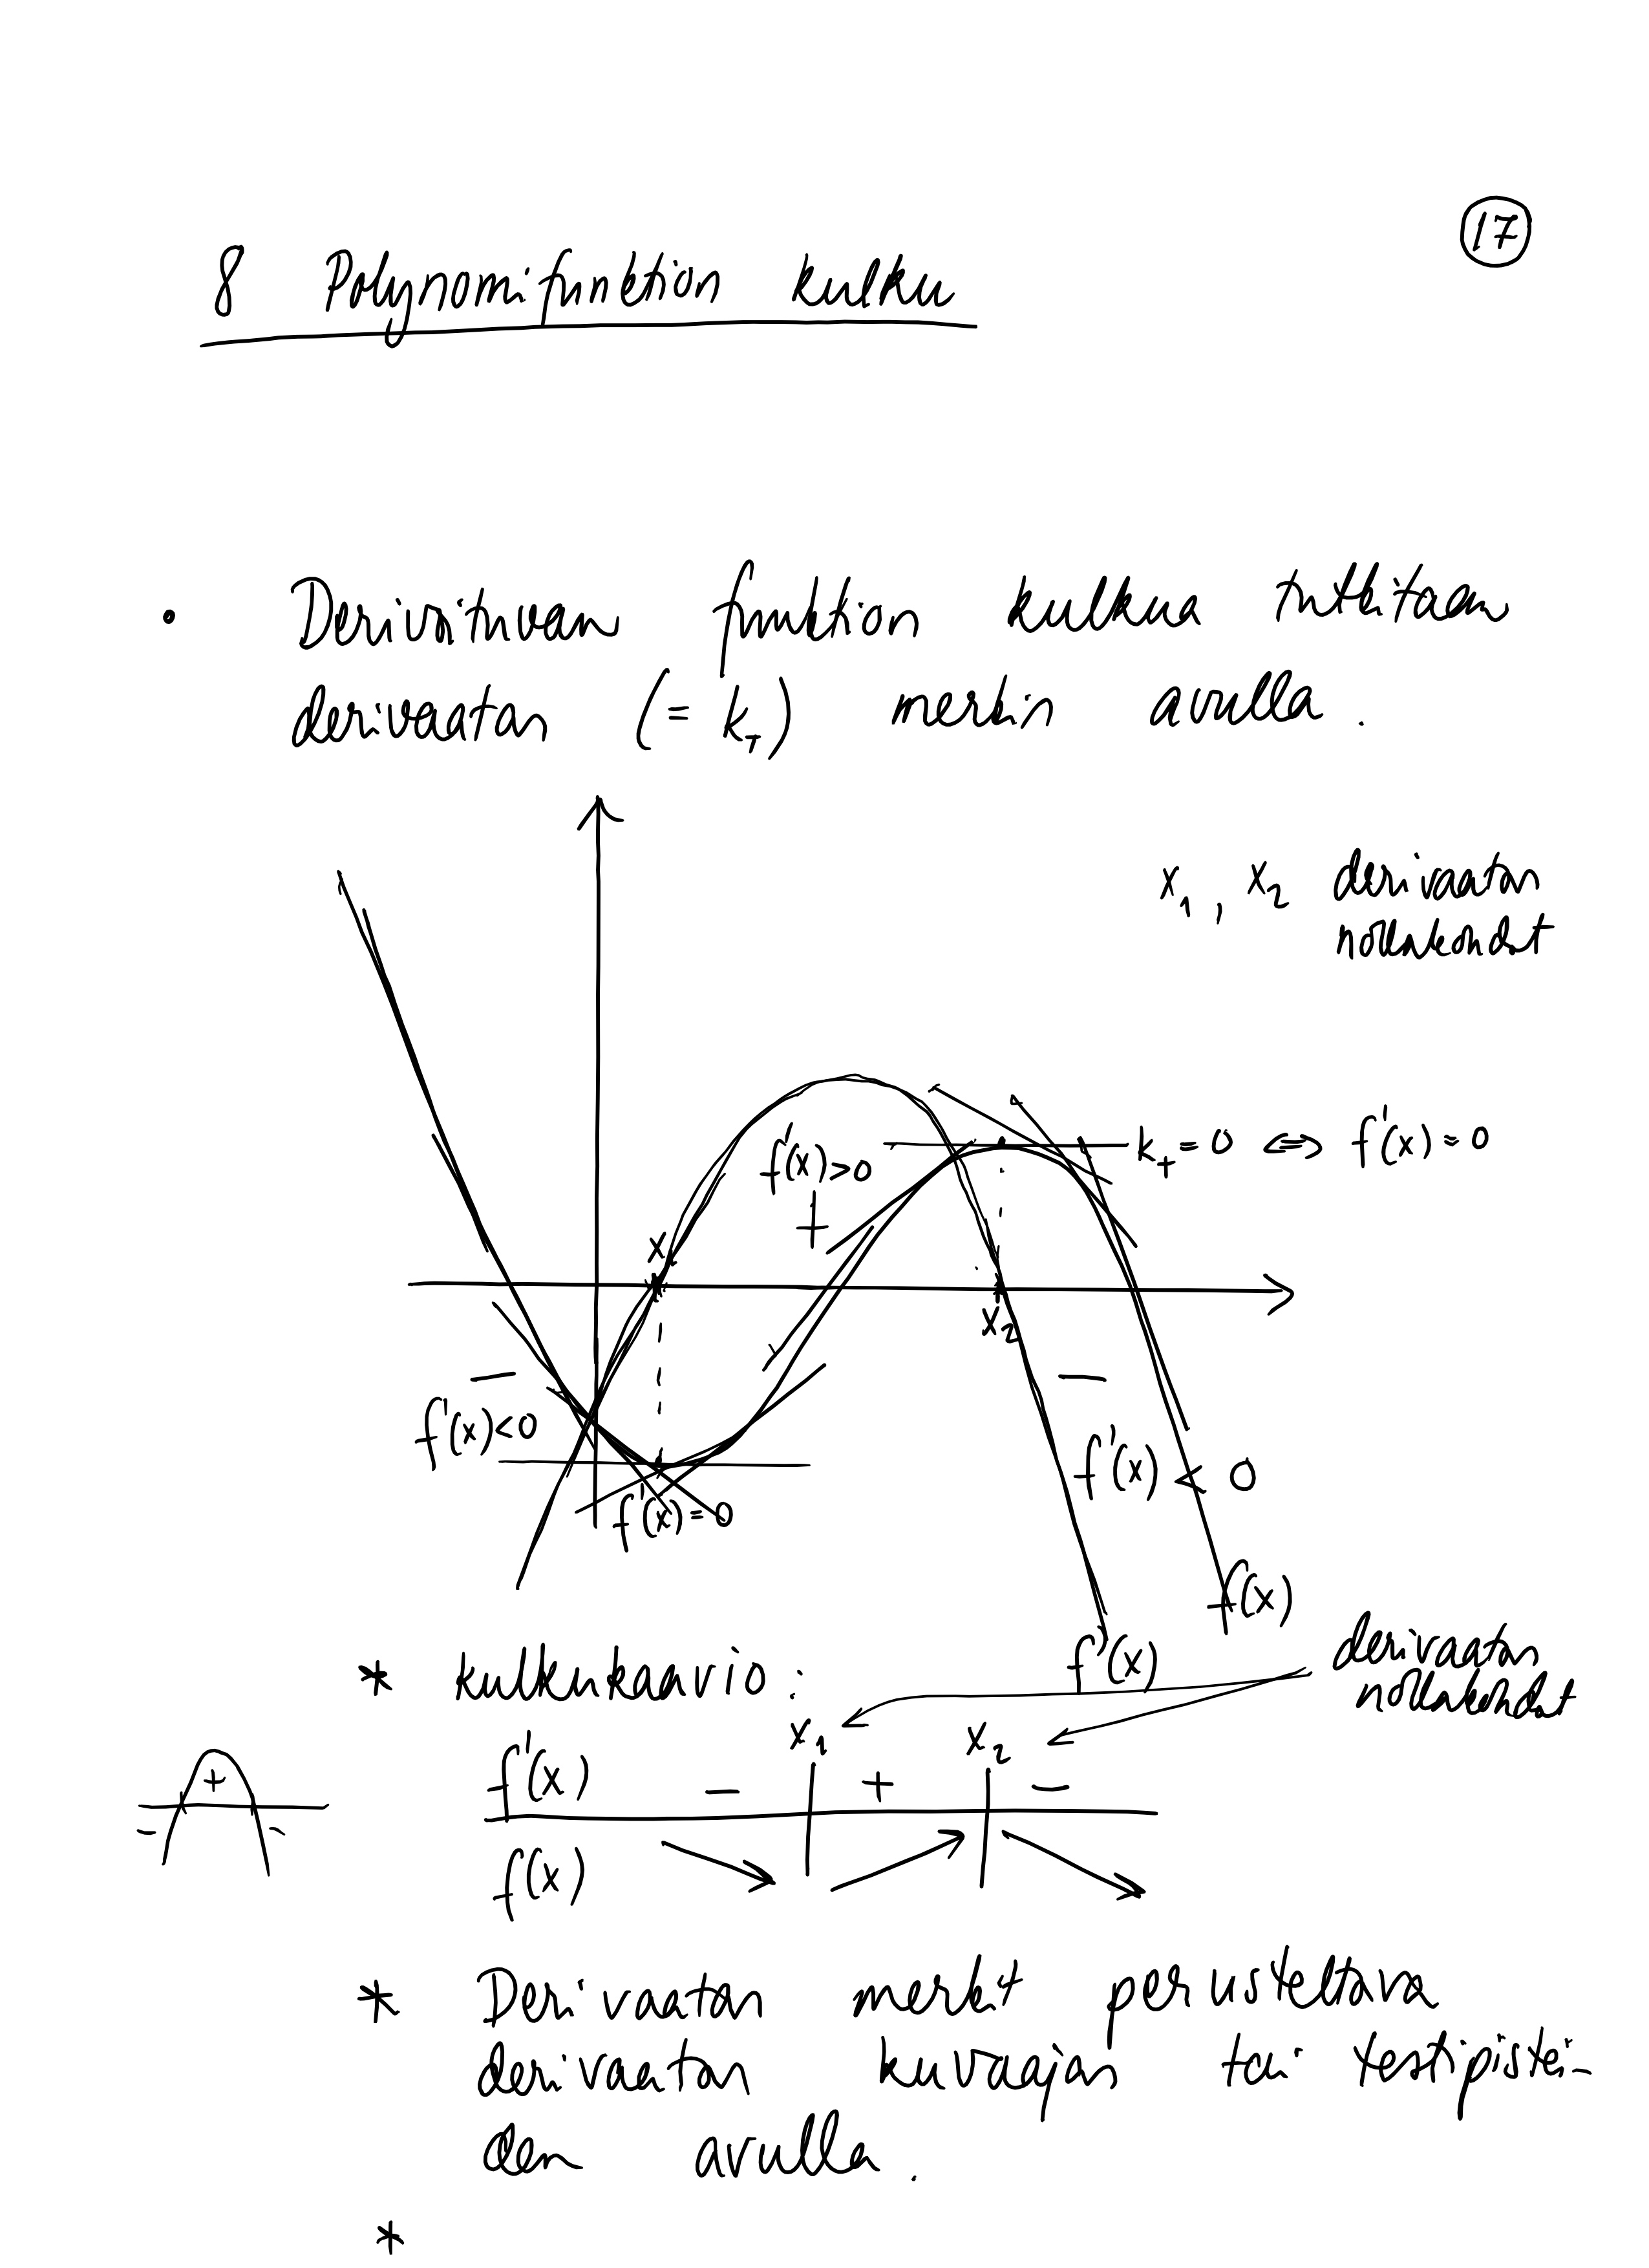 17
8 Polynomifunktion kulku
• Derivoituvan funktion kulkua tutkitaan
derivaatan (= k_T) merkin avulla.
x₁, x₂ derivaatan
nollakohdat
f'(x)>0
+
k_T = 0 ⇔ f'(x) = 0
x₁
x₂
−
−
f'(x)<0
f'(x) < 0
f'(x)=0
f(x)
* kulkukaavio:
f'(x)
derivaatan
nollakohdat
x₁ x₂
+
− −
f'(x) − + −
f(x)
* Derivaatan merkit perusteltava
derivaatan kuvaajan tai testipistei-
den avulla.
*